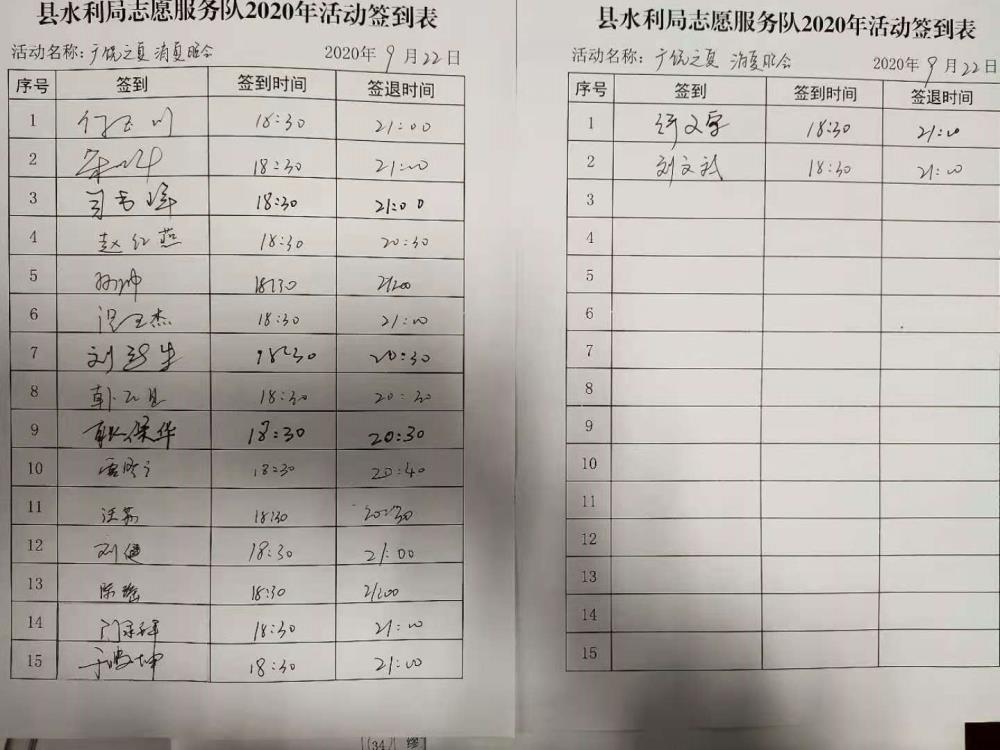 县水利局志愿服务队2020年活动签到表
活动名称：广饶之夏 消夏晚会 2020年9月22日
序号 签到 签到时间 签退时间
1 18:30 21:00
2 18:30 21:00
3 18:30 21:00
4 赵红燕 18:30 20:30
5 孙坤 18:30 21:00
6 18:30 21:00
7 刘 生 18:30 20:30
8 韩 18:30 20:30
9 耿保华 18:30 20:30
10 18:30 20:40
11 汪芳 18:30 20:30
12 刘健 18:30 21:00
13 陈瑶 18:30 21:00
14 18:30 21:00
15 于波坤 18:30 21:00
县水利局志愿服务队2020年活动签到表
活动名称：广饶之夏 消夏晚会 2020年9月22日
序号 签到 签到时间 签退时间
1 许文宇 18:30 21:00
2 刘文 18:30 21:00
3
4
5
6
7
8
9
10
11
12
13
14
15
(34)